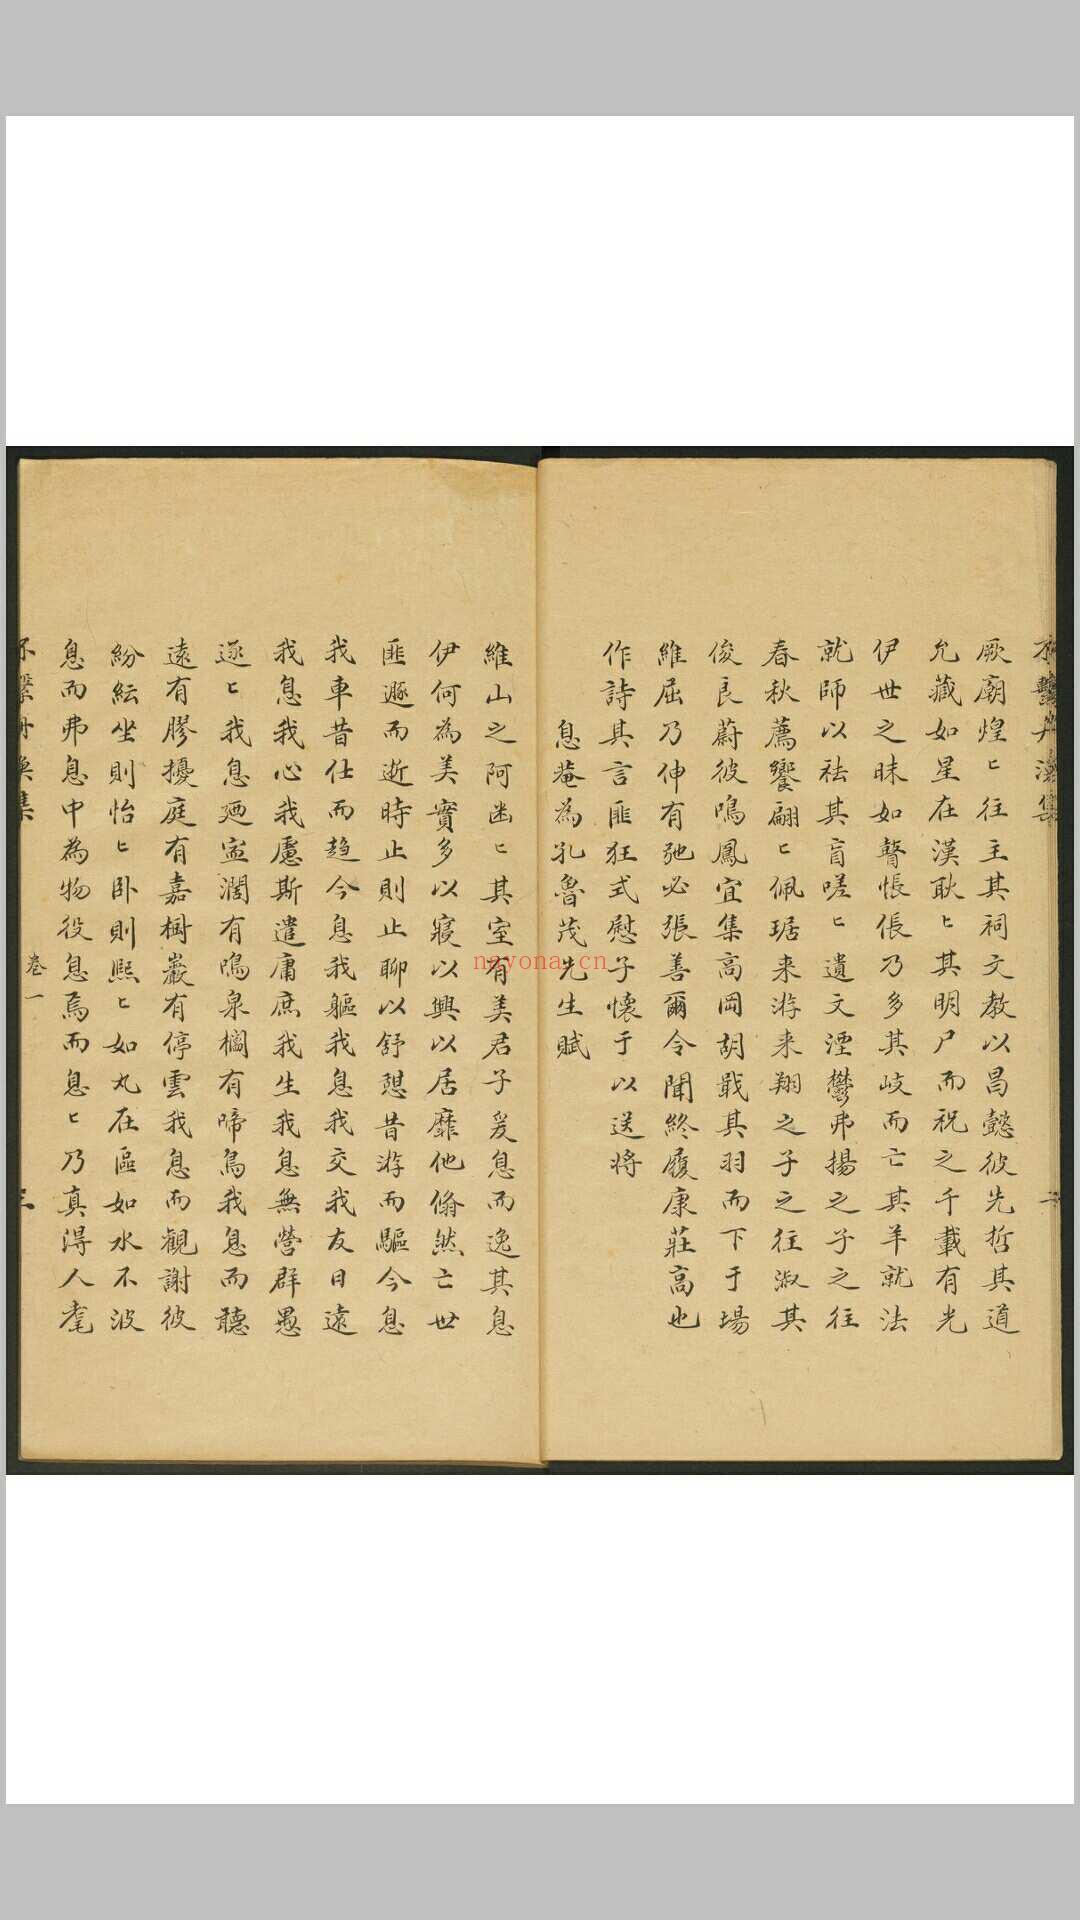 不繫舟漁集
厥廟煌〻往主其祠文教以昌懿彼先哲其道
允藏如星在漢耿〻其明尸而祝之千載有光
伊世之昧如瞽悵倀乃多其岐而亡其羊就法
就師以祛其盲嗟〻遺文湮鬱弗揚之子之往
春秋薦饗翩〻佩琚来游来翔之子之往淑其
俊良蔚彼鳴鳳宜集高岡胡戢其羽而下于場
維屈乃伸有弛必張善爾令聞終履康莊高也
作詩其言匪狂式慰子懷于以送将
息菴為孔魯茂先生賦
維山之阿幽〻其室有美君子爰息而逸其息
伊何為美實多以寢以興以居靡他翛然亡世
匪遯而逝時止則止聊以舒憩昔游而驅今息
我車昔仕而趋今息我軀我息我交我友日遠
我息我心我慮斯遣庸庶我生我息無營群愚
逐〻我息廼寍澗有鳴泉櫩有啼鳥我息而聽
遠有膠擾庭有嘉樹巖有停雲我息而觀謝彼
紛紜坐則怡〻卧則熙〻如丸在區如水不波
息而弗息中為物役息焉而息〻乃真淂人耄
不繫舟漁集
卷一
nayona.cn